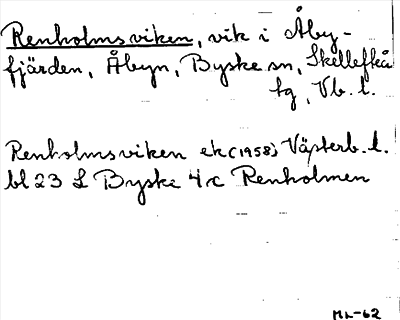 Renholmsviken, vik i Åby-
fjärden, Åbyn, Byske sn, Skellefteå
tg, Vb. l.
Renholmsviken ek (1958) Västerb. l.
bl 23 L Byske 4 c Renholmen